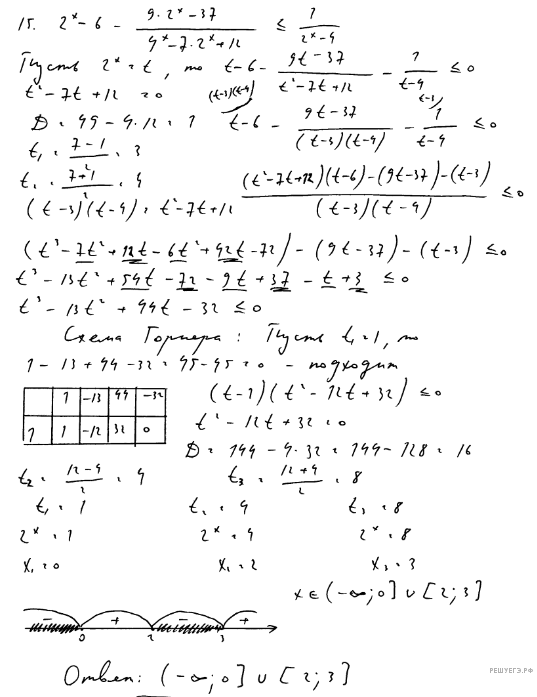 15. 2^x - 6 - (9·2^x - 37)/(4^x - 7·2^x + 12) ≤ 1/(2^x - 4)
Пусть 2^x = t, то t - 6 - (9t - 37)/(t² - 7t + 12) - 1/(t - 4) ≤ 0
t² - 7t + 12 = 0
D = 49 - 4·12 = 1 (t-3)(t-4) t - 6 - (9t - 37)/((t-3)(t-4)) - 1/(t-4) t-3) ≤ 0
t₁ = (7-1)/2 = 3
t₂ = (7+1)/2 = 4
(t-3)(t-4) = t² - 7t + 12 ((t² - 7t + 12)(t-6) - (9t-37) - (t-3))/((t-3)(t-4)) ≤ 0
(t³ - 7t² + 12t - 6t² + 42t - 72) - (9t - 37) - (t-3) ≤ 0
t³ - 13t² + 54t - 72 - 9t + 37 - t + 3 ≤ 0
t³ - 13t² + 44t - 32 ≤ 0
Схема Горнера: Пусть t₁ = 1, то
1 - 13 + 44 - 32 = 45 - 45 = 0 - подходит
1 -13 44 -32
1 1 -12 32 0
(t-1)(t² - 12t + 32) ≤ 0
t² - 12t + 32 = 0
D = 144 - 4·32 = 144 - 128 = 16
t₂ = (12-4)/2 = 4 t₃ = (12+4)/2 = 8
t₁ = 1 t₂ = 4 t₃ = 8
2^x = 1 2^x = 4 2^x = 8
x₁ = 0 x₁ = 2 x₃ = 3
x ∈ (-∞; 0] ∪ [2; 3]
- + - +
0 2 3
Ответ: (-∞; 0] ∪ [2; 3]
РЕШУЕГЭ.РФ